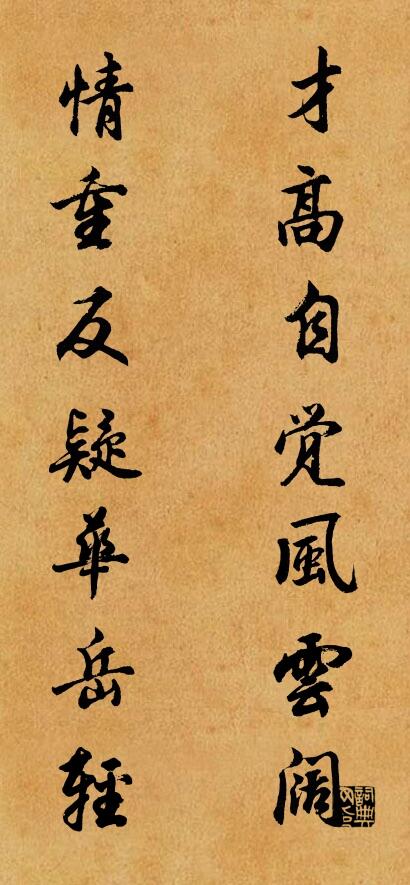 才高自觉風雲阔
情重反疑華岳輕
詞典